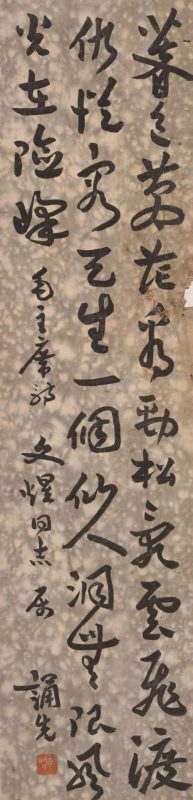 暮色蒼茫看勁松亂雲飛渡
仍從容天生一個仙人洞無限風
光在險峰 毛主席詩 文煜同志屬 誦先